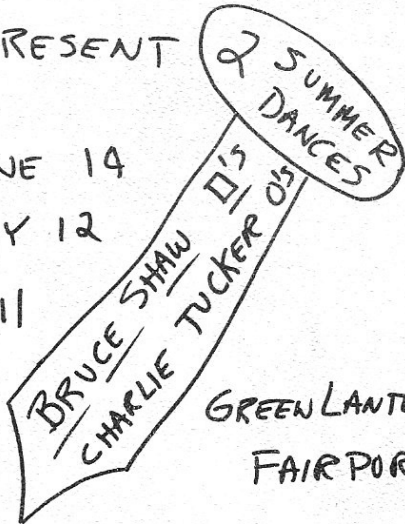 RESENT
2 SUMMER
DANCES
NE 14
Y 12
11
BRUCE SHAW □'S
CHARLIE TUCKER O'S
GREEN LANTE
FAIRPOR